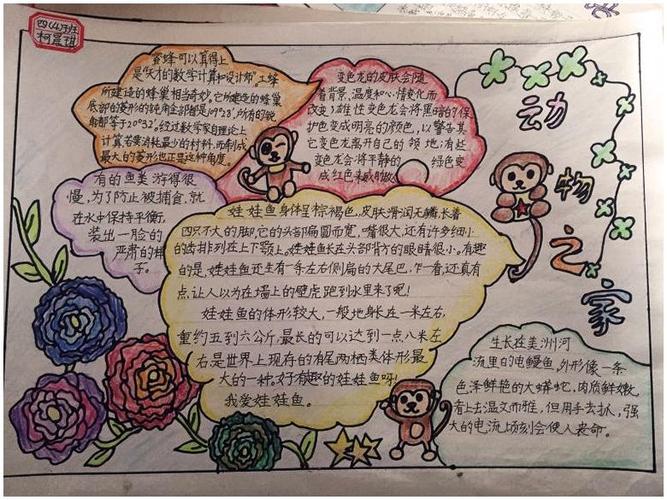 四(4)班
柯晨琪
蜜蜂可以算得上
是“天才的数学计算和设计师”。工蜂
所建造的蜂巢相当奇妙。它所建造的蜂巢
底部的菱形的钝角全部都是109°28′，所有的锐
角都等于70°32′。经过数学家自理论上
计算，若要消耗最少的材料，而制成
最大的菱形也正是这种角度。
变色龙的皮肤会随
着背景、温度和心情变化而
改变；雄性变色龙会将黑暗的保
护色变成明亮的颜色，以警告其
它变色龙离开自己的领地；有些
变色龙会将平静的绿色变
成红色来威吓敌
动
物
之
家
有的鱼类游得很
慢，为了防止被捕食，就
在水中保持平衡，
装出一脸的
严肃的样
子。
娃娃鱼身体呈棕褐色，皮肤滑润无鳞，长着
四只不大的脚，它的头部扁圆而宽，嘴很大，还有许多细小
的齿排列在上下颚上。娃娃鱼长在头部背方的眼睛很小。有趣
的是，娃娃鱼还生有一条左右侧扁的大尾巴，乍一看，还真有
点，让人以为在墙上的壁虎跑到水里来了呢！
娃娃鱼的体形较大，一般地身长在一米左右，
重约五到六公斤，最长的可以达到一点八米左
右，是世界上现存的有尾两栖类体形最
大的一种。好有趣的娃娃鱼呀！
我爱娃娃鱼。
生长在美洲河
流里的电鳗鱼。外形像一条
色泽鲜艳的大蟒蛇，肉质鲜嫩，
看上去温文而雅，但用手去抓，强
大的电流，顷刻会使人丧命。